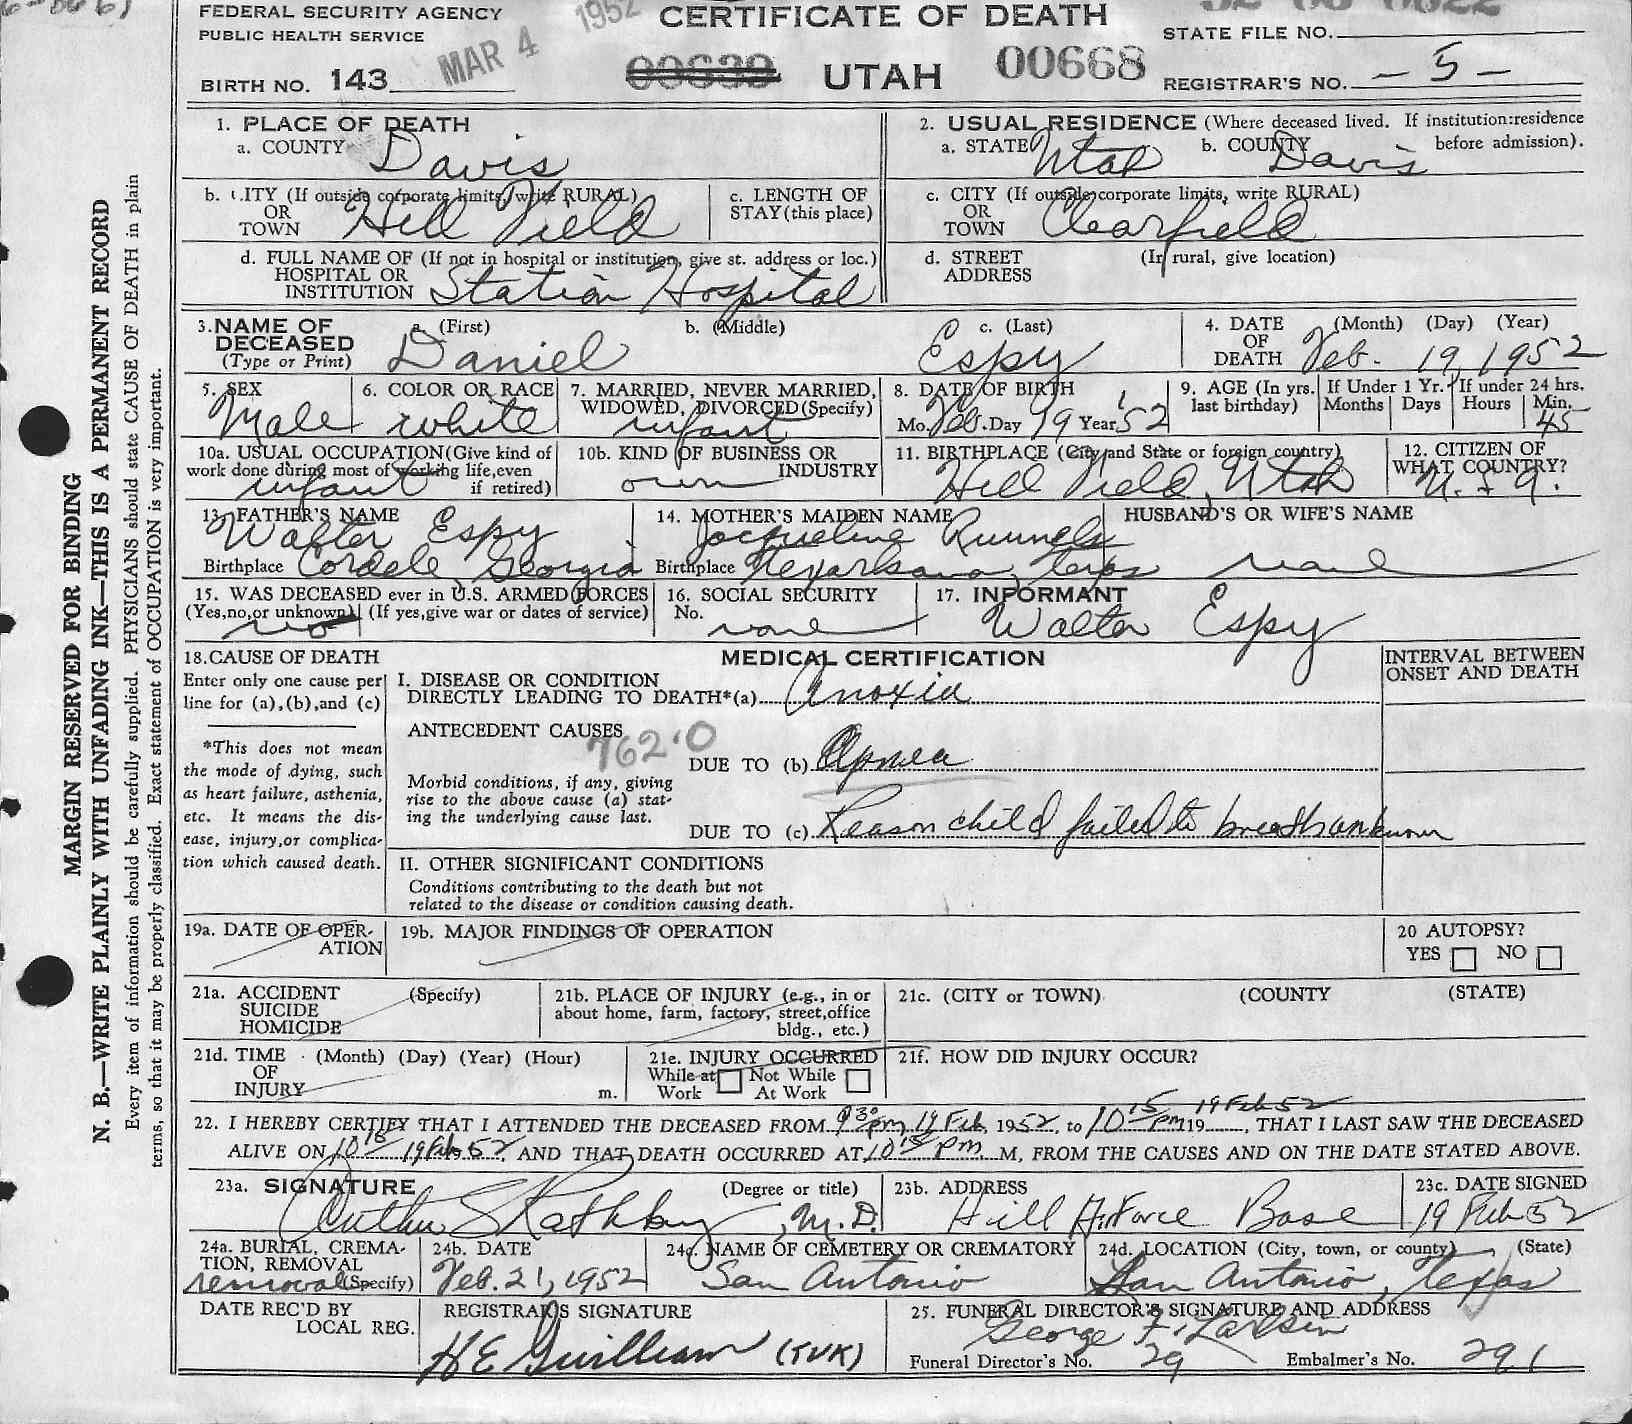 FEDERAL SECURITY AGENCY
PUBLIC HEALTH SERVICE
MAR 4 1952
CERTIFICATE OF DEATH
STATE FILE NO.
BIRTH NO. 143
00639 UTAH 00668
REGISTRAR'S NO. - 5 -
1. PLACE OF DEATH
a. COUNTY Davis
2. USUAL RESIDENCE (Where deceased lived. If institution:residence before admission).
a. STATE Utah b. COUNTY Davis
b. CITY (If outside corporate limits, write RURAL)
OR
TOWN Hill Field
c. LENGTH OF
STAY (this place)
c. CITY (If outside corporate limits, write RURAL)
OR
TOWN Clearfield
d. FULL NAME OF (If not in hospital or institution, give st. address or loc.)
HOSPITAL OR
INSTITUTION Station Hospital
d. STREET (If rural, give location)
ADDRESS
3. NAME OF DECEASED
(Type or Print)
a. (First) Daniel
b. (Middle)
c. (Last) Espy
4. DATE OF DEATH (Month) (Day) (Year)
Feb. 19, 1952
5. SEX
Male
6. COLOR OR RACE
white
7. MARRIED, NEVER MARRIED,
WIDOWED, DIVORCED (Specify)
infant
8. DATE OF BIRTH
Mo. Feb. Day 19 Year '52
9. AGE (In yrs. last birthday)
If Under 1 Yr. Months Days
If under 24 hrs. Hours Min.
45
10a. USUAL OCCUPATION (Give kind of
work done during most of working life, even
if retired)
infant
10b. KIND OF BUSINESS OR
INDUSTRY
own
11. BIRTHPLACE (City and State or foreign country)
Hill Field, Utah
12. CITIZEN OF
WHAT COUNTRY?
U.S.A.
13. FATHER'S NAME
Walter Espy
Birthplace Cordele, Georgia
14. MOTHER'S MAIDEN NAME
Jacqueline Runnels
Birthplace Texarkana, Texas
HUSBAND'S OR WIFE'S NAME
none
15. WAS DECEASED ever in U.S. ARMED FORCES
(Yes, no, or unknown) (If yes, give war or dates of service)
no
16. SOCIAL SECURITY
No. none
17. INFORMANT
Walter Espy
18. CAUSE OF DEATH
Enter only one cause per
line for (a), (b), and (c)
*This does not mean
the mode of dying, such
as heart failure, asthenia,
etc. It means the dis-
ease, injury, or complica-
tion which caused death.
MEDICAL CERTIFICATION
INTERVAL BETWEEN
ONSET AND DEATH
I. DISEASE OR CONDITION
DIRECTLY LEADING TO DEATH*(a) Anoxia
ANTECEDENT CAUSES
762.0
DUE TO (b) Apnea
Morbid conditions, if any, giving
rise to the above cause (a) stat-
ing the underlying cause last.
DUE TO (c) Reason child failed to breath unknown
II. OTHER SIGNIFICANT CONDITIONS
Conditions contributing to the death but not
related to the disease or condition causing death.
19a. DATE OF OPER-
ATION
19b. MAJOR FINDINGS OF OPERATION
20 AUTOPSY?
YES NO
21a. ACCIDENT (Specify)
SUICIDE
HOMICIDE
21b. PLACE OF INJURY (e.g., in or
about home, farm, factory, street, office
bldg., etc.)
21c. (CITY or TOWN) (COUNTY (STATE)
21d. TIME (Month) (Day) (Year) (Hour)
OF
INJURY m.
21e. INJURY OCCURRED
While at Work Not While At Work
21f. HOW DID INJURY OCCUR?
22. I HEREBY CERTIFY THAT I ATTENDED THE DECEASED FROM 9 30 pm, 19 Feb, 1952, to 10 15 pm 19 Feb 52 19, THAT I LAST SAW THE DECEASED
ALIVE ON 10 15 19 Feb 52, AND THAT DEATH OCCURRED AT 10 15 pm M, FROM THE CAUSES AND ON THE DATE STATED ABOVE.
23a. SIGNATURE (Degree or title)
Rathbury, M.D.
23b. ADDRESS
Hill Air Force Base
23c. DATE SIGNED
19 Feb 52
24a. BURIAL, CREMA-
TION, REMOVAL
(Specify) removal
24b. DATE
Feb. 21, 1952
24c. NAME OF CEMETERY OR CREMATORY
San Antonio
24d. LOCATION (City, town, or county) (State)
San Antonio, Texas
DATE REC'D BY
LOCAL REG.
REGISTRAR'S SIGNATURE
H E Guilliam (TVK)
25. FUNERAL DIRECTOR'S SIGNATURE AND ADDRESS
George F. Larsen
Funeral Director's No. 29 Embalmer's No. 291
MARGIN RESERVED FOR BINDING
N. B.—WRITE PLAINLY WITH UNFADING INK—THIS IS A PERMANENT RECORD
Every item of information should be carefully supplied. PHYSICIANS should state CAUSE OF DEATH in plain
terms, so that it may be properly classified. Exact statement of OCCUPATION is very important.